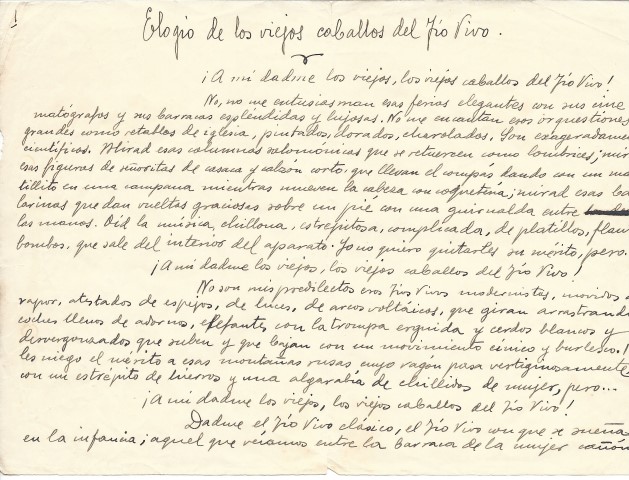 1
Elogio de los viejos caballos del Tío Vivo.
¡A mí dadme los viejos, los viejos caballos del Tío Vivo!
No, no me entusiasman esas ferias elegantes con sus cine
matógrafos y sus barracas espléndidas y lujosas. No me encantan esos orquestiones
grandes como retablos de iglesia, pintados, dorados, charolados. Son exageradamen
científicos. Mirad esas columnas salomónicas que se retuercen como lombrices; mir
esas figuras de señoritas de casaca y calzón corto, que llevan el compás dando con un ma
tillito en una campana mientras mueven la cabeza con coquetería; mirad esas ba
larinas que dan vueltas graciosas sobre un pie con una guirnalda entre
las manos. Oíd la música, chillona, estrepitosa, complicada, de platillos, flau
bombos, que sale del interior del aparato. Yo no quiero quitarles su mérito, pero.
¡A mí dadme los viejos, los viejos caballos del Tío Vivo!
No son mis predilectos esos Tíos Vivos modernistas, movidos a
vapor, atestados de espejos, de luces, de arcos voltáicos, que giran arrastrando
coches llenos de adornos, elefantes con la trompa erguida y cerdos blancos y
desvergonzados que suben y que bajan con un movimiento cínico y burlesco,!
les niego el mérito a esas montañas rusas cuyo vagón pasa vertiginosamente
con un estrépito de hierros y una algarabía de chillidos de mujer, pero...
¡A mí dadme los viejos, los viejos caballos del Tío Vivo!
Dadme el Tío Vivo clásico, el Tío Vivo con que se sueña
en la infancia; aquel que veíamos entre la barraca de la mujer cañón